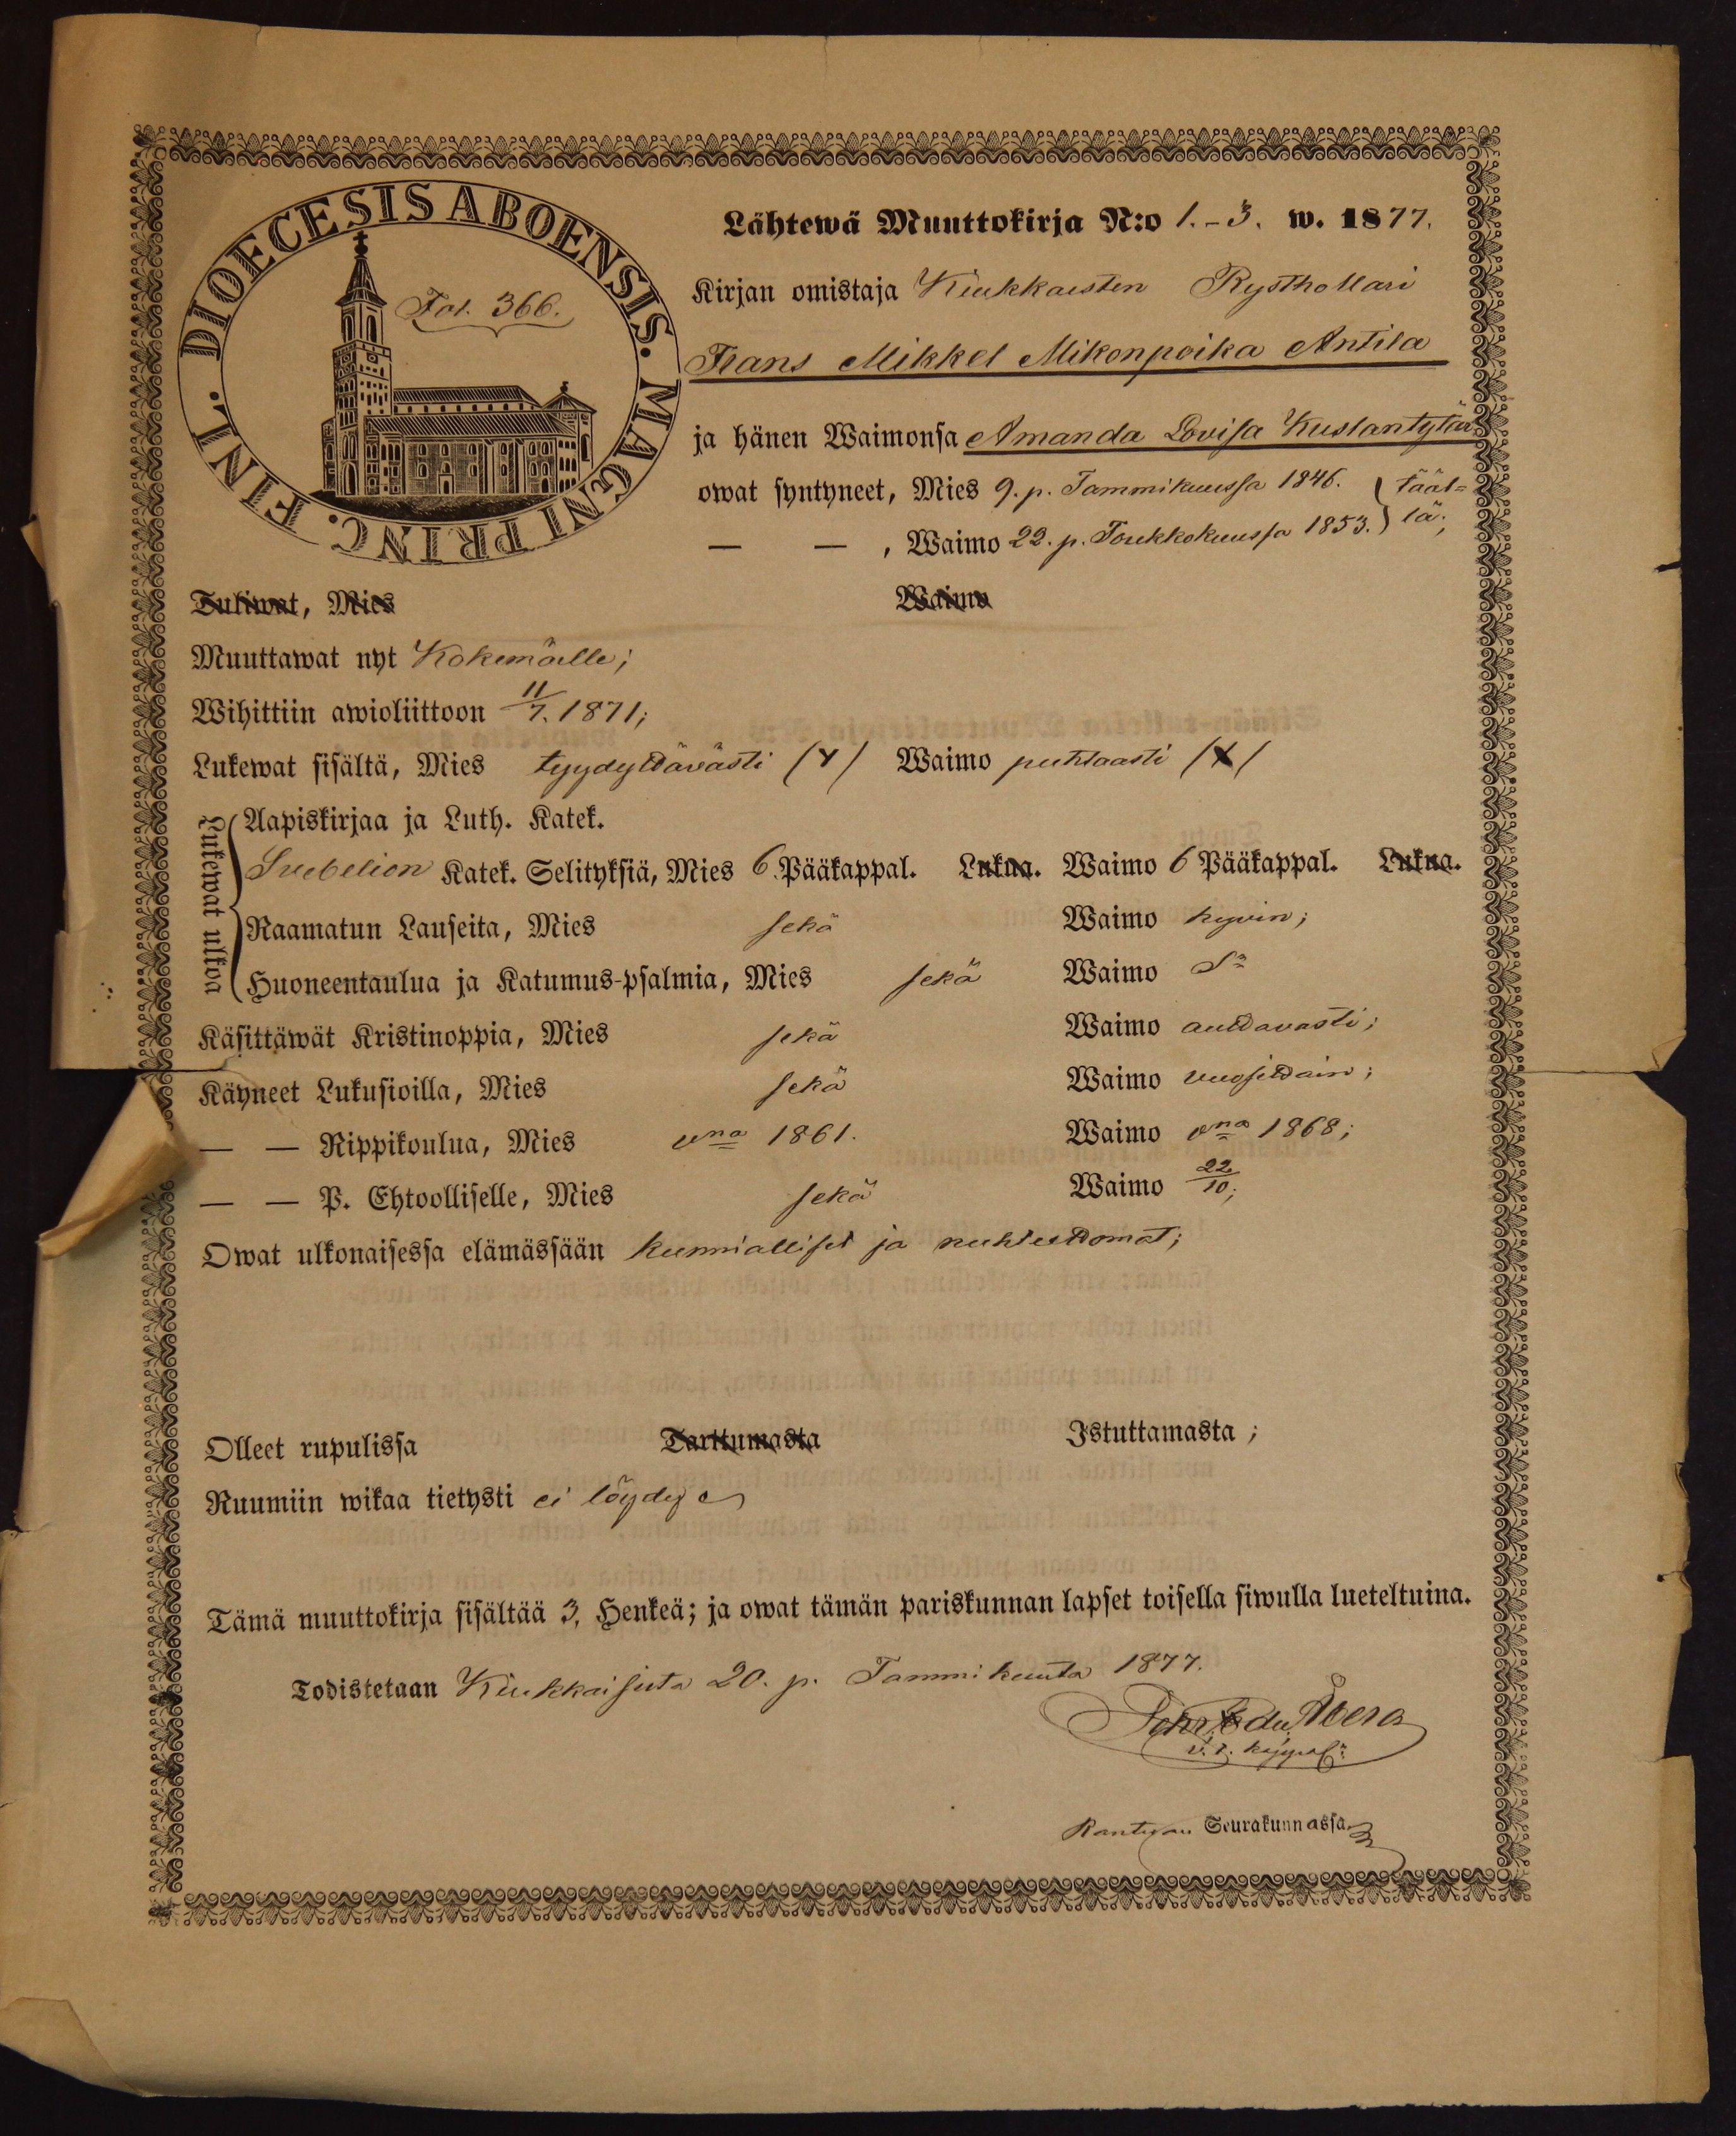 DIOECESIS ABOENSIS. MAGNI PRINC. FINL.
Fol. 366.
Lähtewä Muuttokirja N:o 1.-3. w. 1877.
Kirjan omistaja Kiukkaisten Rysthollari
Frans Mikkel Mikonpoika Antila
ja hänen Waimonsa Amanda Lovisa Kustantytär
owat syntyneet, Mies 9. p. Tammikuussa 1846. } tääl=
— — , Waimo 22. p. Toukkokuussa 1853. } lä;
Tuliwat, Mies Waimo
Muuttawat nyt Kokemäelle;
Wihittiin awioliittoon 11/7. 1871;
Lukewat sisältä, Mies tyydyttävästi (Y) Waimo puhtaasti (X)
Lukewat ulkoa
Aapiskirjaa ja Luth. Katek.
Svebelion Katek. Selityksiä, Mies 6. Pääkappal. Lukua. Waimo 6 Pääkappal. Lukua.
Raamatun Lauseita, Mies sekä Waimo hyvin;
Huoneentaulua ja Katumus-psalmia, Mies sekä Waimo
Käsittäwät Kristinoppia, Mies sekä Waimo auttavasti;
Käyneet Lukusioilla, Mies sekä Waimo vuosittain;
— — Rippikoulua, Mies vna 1861. Waimo vna 1868;
— — P. Ehtoolliselle, Mies sekä Waimo 22/10;
Owat ulkonaisessa elämässään kunnialliset ja nuhteettomat;
Olleet rupulissa Tarttumasta Istuttamasta;
Ruumiin wikaa tietysti ei löydy
Tämä muuttokirja sisältää 3, Henkeä; ja owat tämän pariskunnan lapset toisella siwulla lueteltuina.
Todistetaan Kiukkaisista 20. p. Tammikuuta 1877.
v. t. kappal:
Seurakunnassa